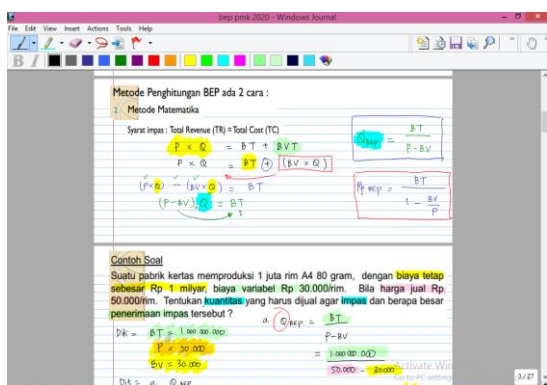 bep pmk 2020 - Windows Journal
File Edit View Insert Actions Tools Help
B I
Metode Penghitungan BEP ada 2 cara :
1. Metode Matematika
Syarat impas : Total Revenue (TR) = Total Cost (TC)
P × Q = BT + BVT
P × Q = BT + (BV × Q)
(P×Q) - (BV×Q) = BT
(P-BV) Q = BT
Q BEP = BT / P-BV
Rp BEP = BT / 1 - BV/P
Contoh Soal
Suatu pabrik kertas memproduksi 1 juta rim A4 80 gram, dengan biaya tetap
sebesar Rp 1 milyar, biaya variabel Rp 30.000/rim. Bila harga jual Rp
50.000/rim. Tentukan kuantitas yang harus dijual agar impas dan berapa besar
penerimaan impas tersebut ?
a. Q BEP = BT / P-BV
= 1.000.000.000 / 50.000 - 30000
Dik = BT = 1.000.000.000
P = 50.000
BV = 30.000
Dit = a. Q BEP
Activate Win
Go to PC setting
3/27